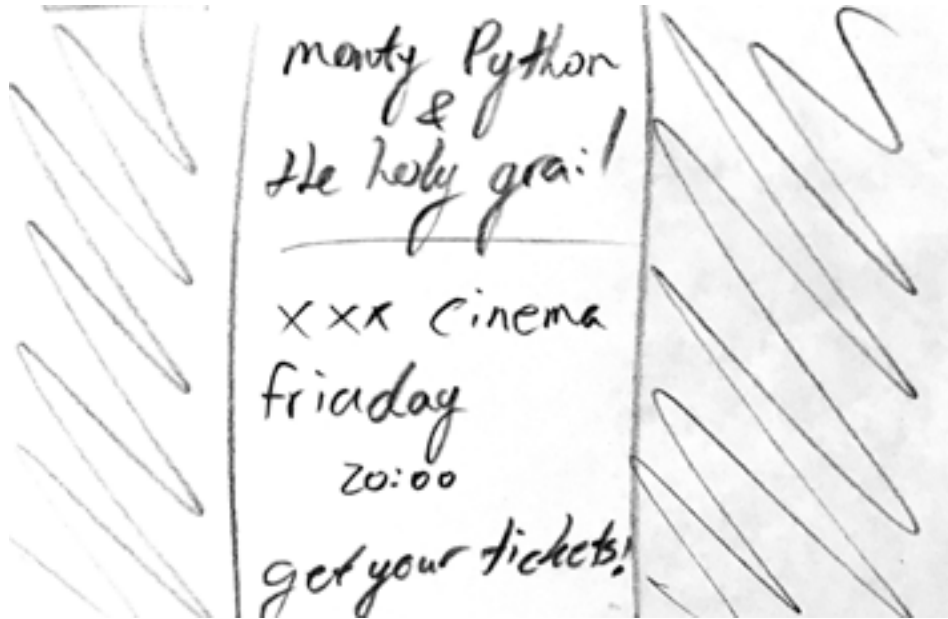 monty Python
&
the holy grail
xxx cinema
friaday
20:00
get your tickets!